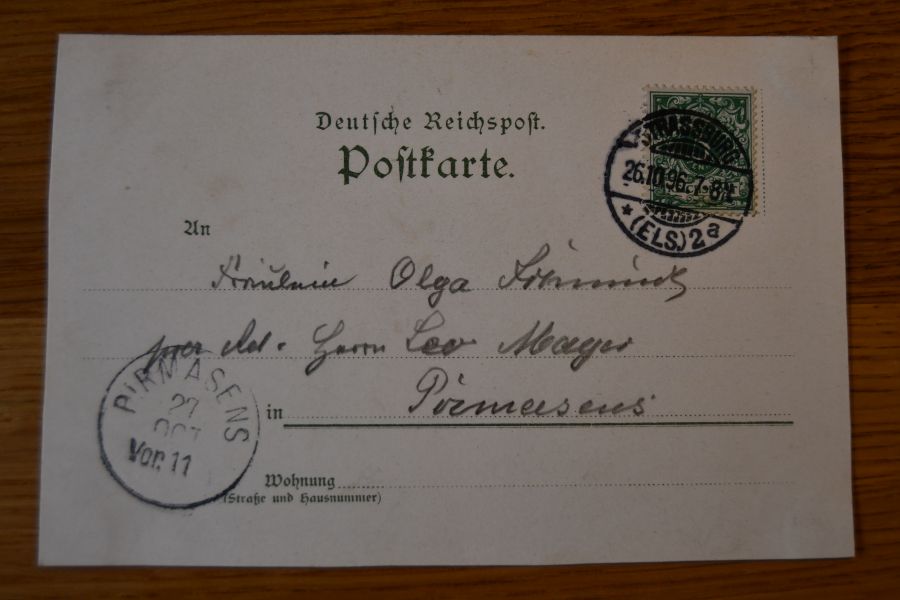 Deutsche Reichspost.
Postkarte.
STRASSBURG
26.10.96.7-8N.
* (ELS.) 2a
An
Fräulein Olga
per Ad. Herrn Leo Mayer
in Pirmasens
PIRMASENS
27
OCT
Vor. 11
Wohnung
(Straße und Hausnummer)